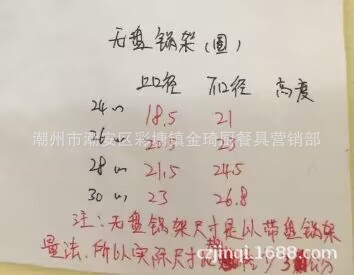 无盘锅架(圆)
上口径 下口径 高度
24cm 18.5 21
26cm
潮州市潮安区彩塘镇金琦厨餐具营销部
28cm 21.5 24.5
30cm 23 26.8
注:无盘锅架尺寸是以带盘锅架
量法,所以实际尺寸
czjinqi.1688.com